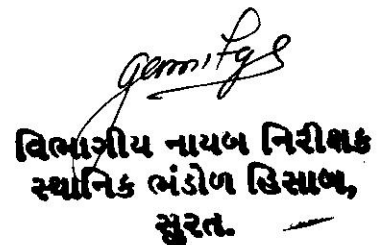 વિભાગીય નાયબ નિરીક્ષક
સ્થાનિક ભંડોળ હિસાબ,
સુરત.